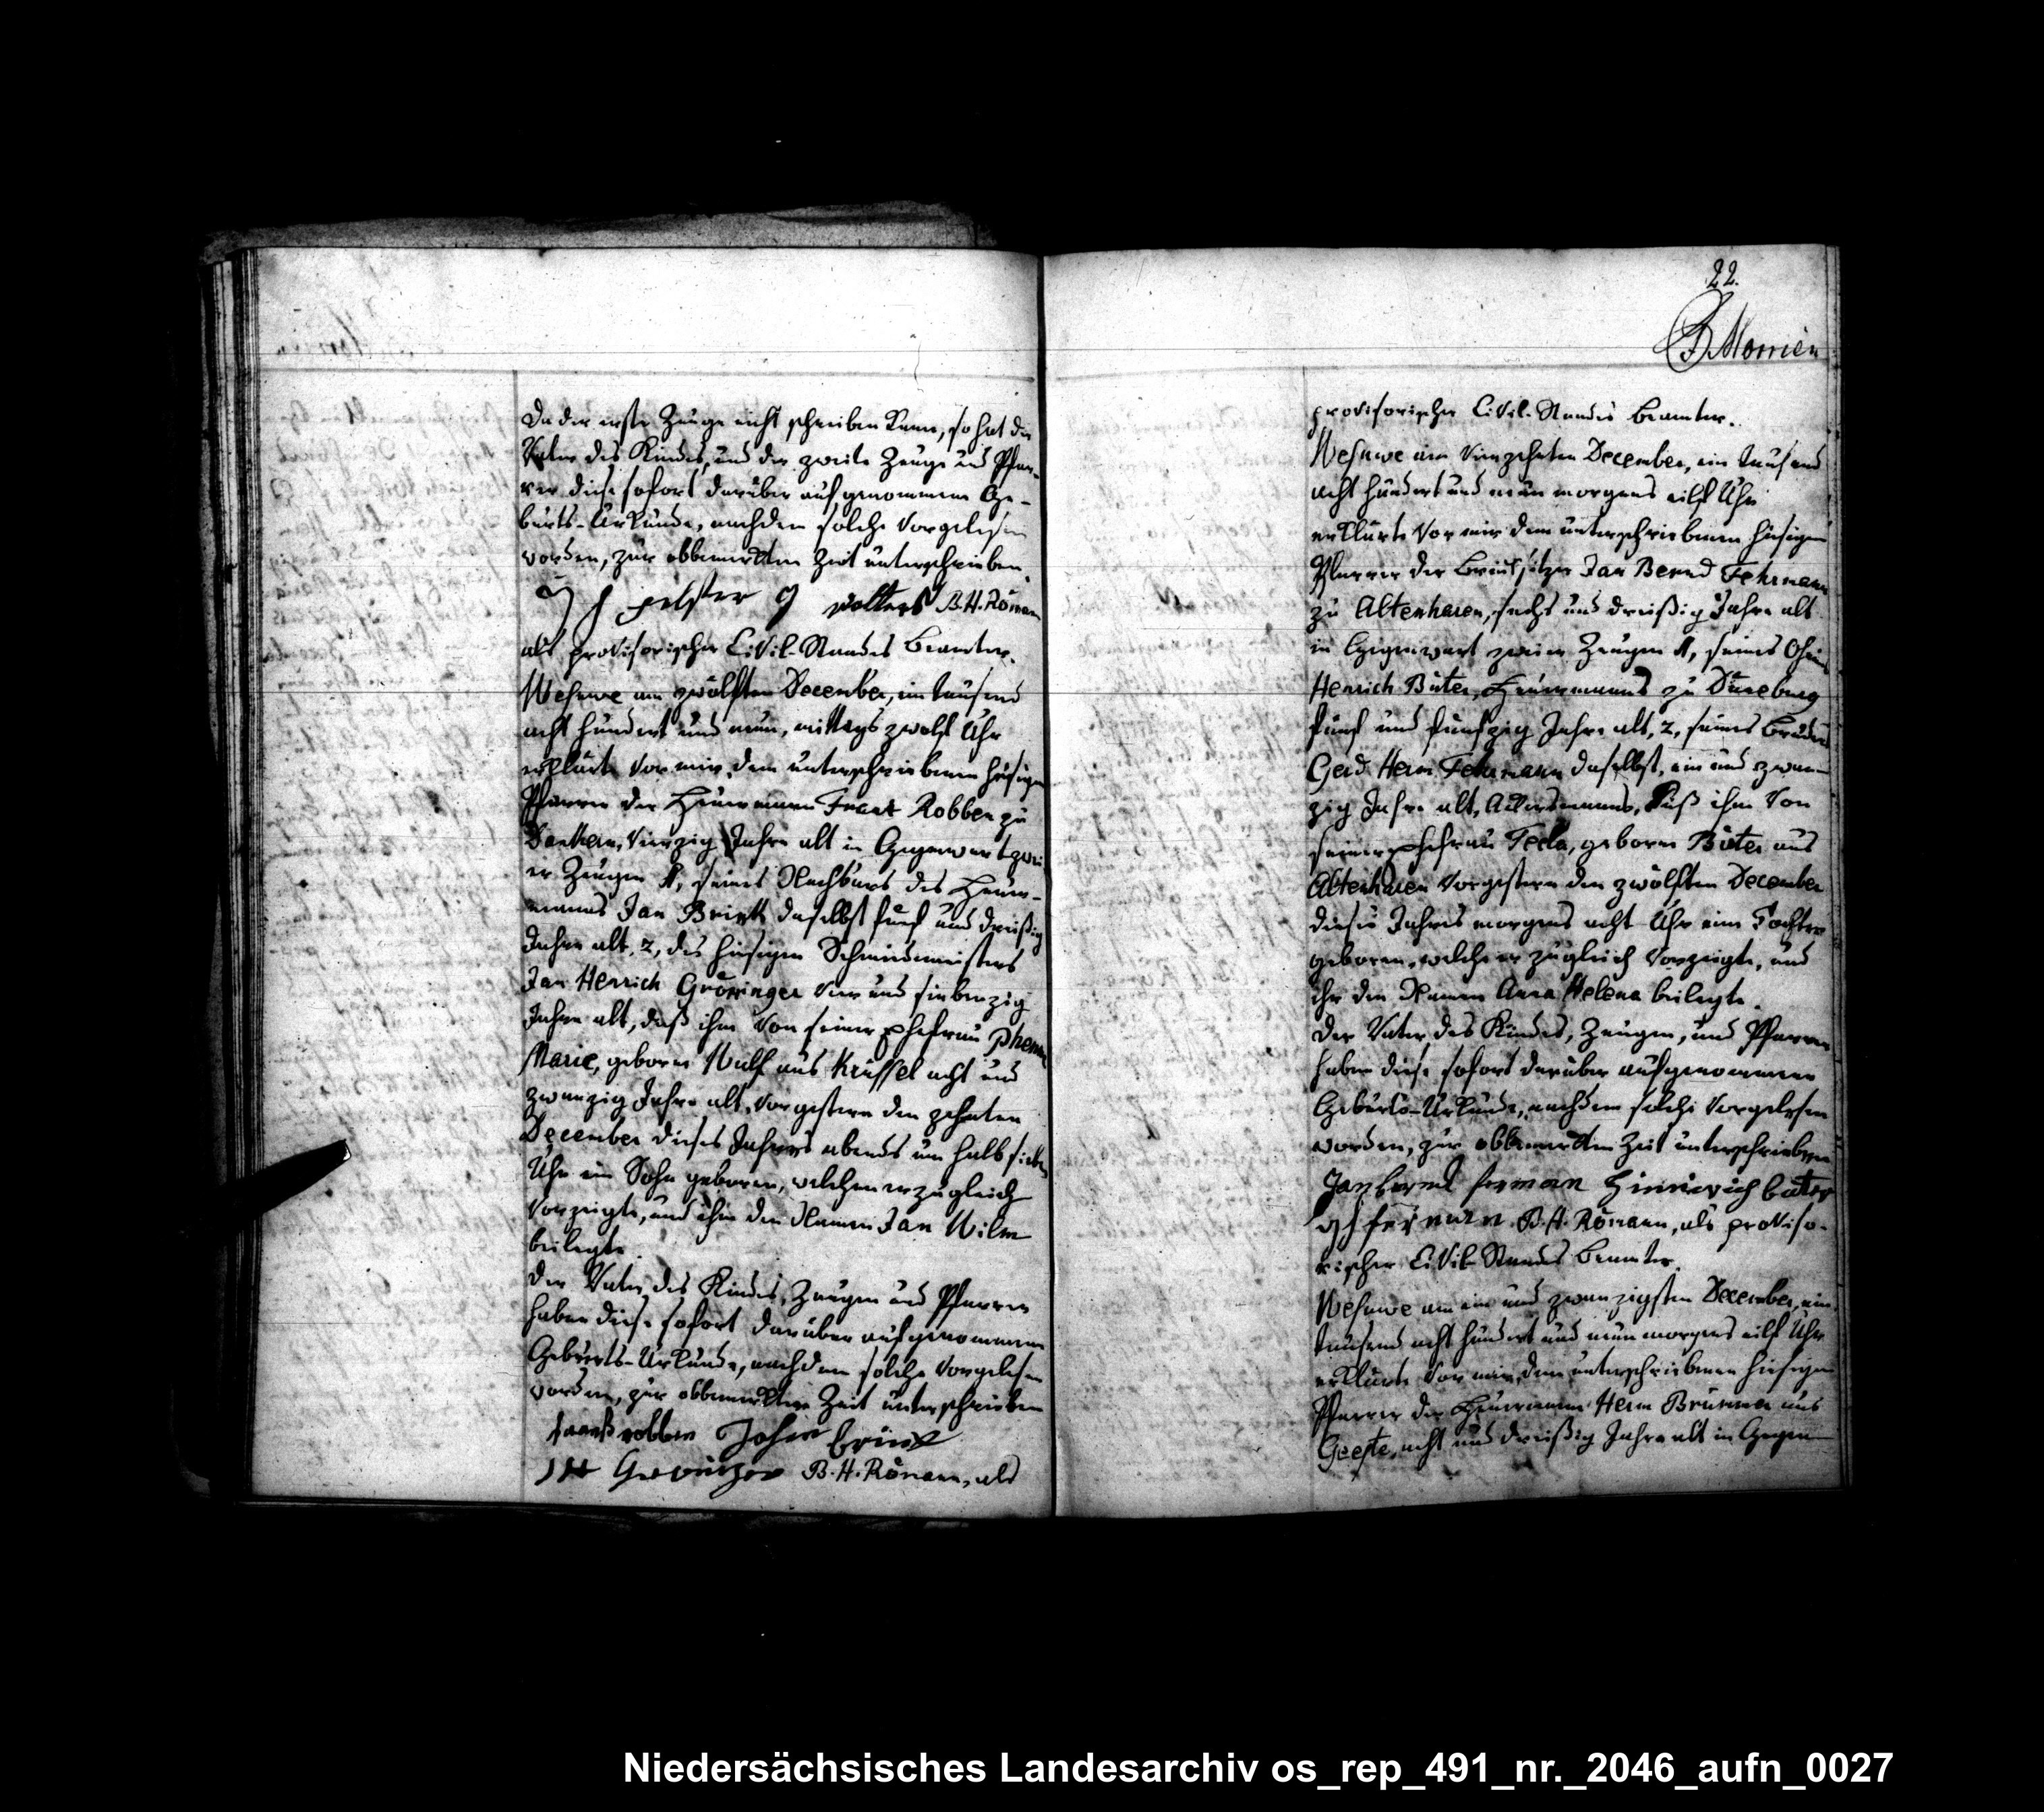 Da der erste Zeuge nicht schreiben kann, so hat der
Vater des Kindes, und der zweite Zeuge und Pfar-
rer diese sofort darüber aufgenommene Ge-
burts-Urkunde, nachdem solche vorgelesen
worden, zur obbemerkten Zeit unterschrieben.
J H pelster J wolters B. H. Römann
als provisorischer Civil-Standes Beamter.
Wesuwe am zwölften December, ein tausend
acht hundert und neun, mittags zwölf Uhr
erklärte vor mir, dem unterschriebenen hiesigen
Pfarrer der Heuermann Robben zu
Dankern, vierzig Jahre alt in Gegenwart zwei
er Zeugen 1, seines Nachbars des Heuer-
manns Jan Brink daselbst fünf und dreißig
Jahre alt, 2, des hiesigen Schmiedmeisters
Jan Henrich Gröninger vier und siebenzig
Jahre alt, daß ihm von seiner Ehefrau
Marie, geborne Wulf aus Krüssel acht und
zwanzig Jahre alt, vorgestern den zehnten
December dieses Jahres abends um halb sieben
Uhr ein Sohn geboren, welchen er zugleich
vorzeigte, und ihm den Namen Jan Wilm
beilegte.
Der Vater des Kindes, Zeugen und Pfarrer
haben diese sofort darüber aufgenommene
Geburts-Urkunde, nachdem solche vorgelesen
worden, zur obbemerkten Zeit unterschrieben
robben Johan brink
B. H. Römann, als
22.
Morrien
provisorischer Civil-Standes Beamter.
Wesuwe am vierzehnten December, ein tausend
acht hundert und neun morgens eilf Uhr
erklärte vor mir dem unterschriebenen hiesigen
Pfarrer der Brinksitzer Jan Bernd Fehrmann
zu Altenharen, sechs und dreißig Jahre alt
in Gegenwart zweier Zeugen 1, seines Oheims
Henrich Büter, Heuermanns zu Düneburg
fünf und fünfzig Jahre alt, 2, seines Bruders
Gerd Herm Fehrmann daselbst, ein und zwan-
zig Jahre alt, Ackersmanns, daß ihm von
seiner Ehefrau Tecla, geborne Büter aus
Altenharen vorgestern den zwölften December
dieses Jahres morgens acht Uhr eine Tochter
geboren, welche er zugleich vorzeigte, und
ihr den Namen Anna Helena beilegte.
Der Vater des Kindes, Zeugen, und Pfarrer
haben diese sofort darüber aufgenommene
Geburts-Urkunde, nachdem solche vorgelesen
worden, zur obbemerkten Zeit unterschrieben
Jan bernd fermann Hinnerich büter
B. H. Römann, als proviso-
rischer Civil-Standes Beamter.
Wesuwe am ein und zwanzigsten December, ein
tausend acht hundert und neun morgens eilf Uhr
erklärte vor mir, dem unterschriebenen hiesigen
Pfarrer der Heuermann Herm Brümmer aus
Geeste, acht und dreißig Jahre alt in Gegen-
Niedersächsisches Landesarchiv os_rep_491_nr._2046_aufn_0027